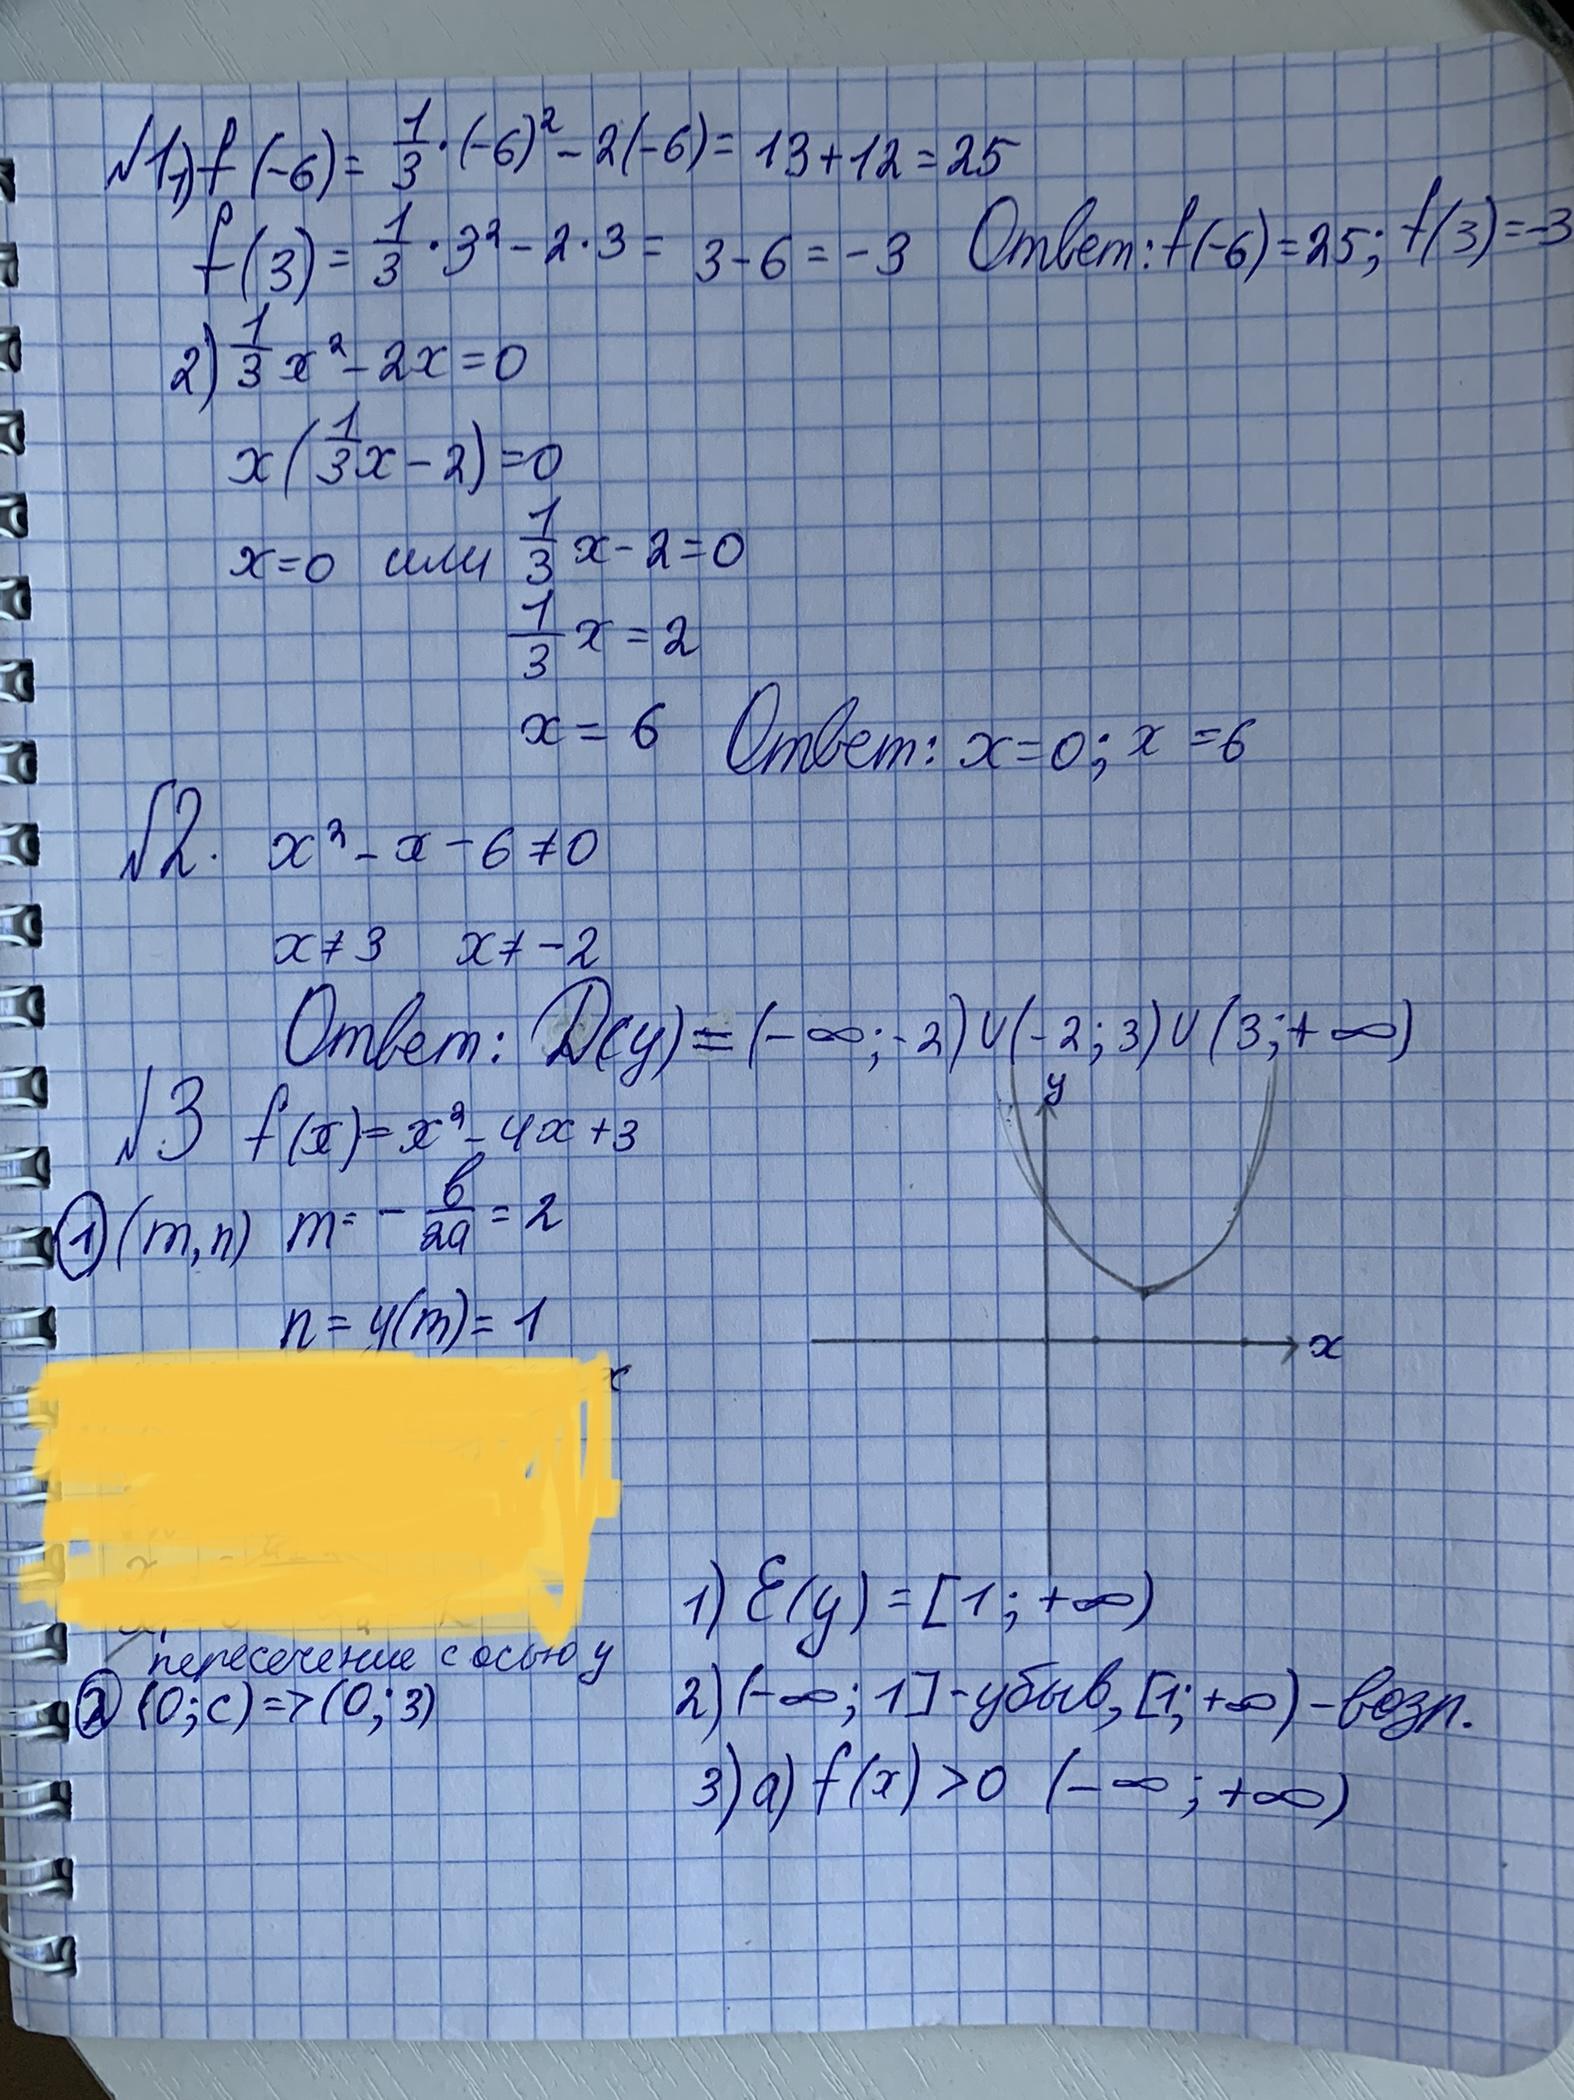 №1 1) f(-6) = 1/3 · (-6)² - 2(-6) = 13 + 12 = 25
f(3) = 1/3 · 3² - 2 · 3 = 3 - 6 = -3 Ответ: f(-6) = 25; f(3) = -3
2) 1/3 x² - 2x = 0
x(1/3 x - 2) = 0
x = 0 или 1/3 x - 2 = 0
1/3 x = 2
x = 6 Ответ: x = 0; x = 6
№2. x² - x - 6 ≠ 0
x ≠ 3 x ≠ -2
Ответ: D(y) = (-∞; -2) ∪ (-2; 3) ∪ (3; +∞)
№3 f(x) = x² - 4x + 3
y
① (m, n) m = - b/2a = 2
n = y(m) = 1
x
x
пересечение с осью y
② (0; c) => (0; 3)
1) E(y) = [1; +∞)
2) (-∞; 1] - убыв, [1; +∞) - возр.
3) a) f(x) > 0 (-∞; +∞)